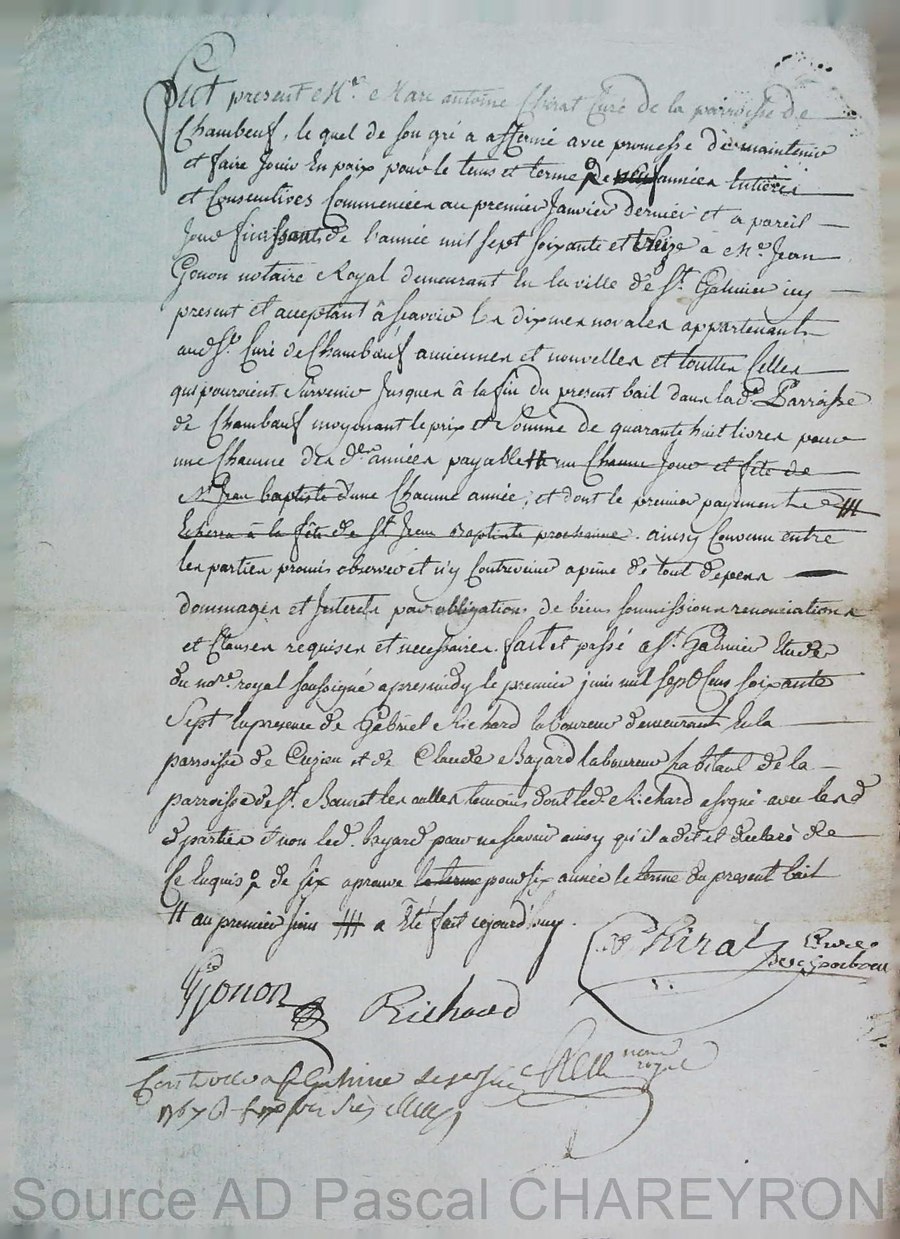 fut present Mre. Marc antoine Chirat Curé de la parroisse de
Chambeuf, le quel de son gré a affermé avec promesse de maintenir
et faire Jouir En paix pour le tems et terme de neuf années Entières
et Consecutives Commencées au premier Janvier dernier et a pareil
Jour finissants de l'année mil sept soixante et treize a Me. Jean
Gonon notaire Royal demeurant En la ville de St. Galmier icy
present et acceptant â scavoir les dixmes novales appartenants
aud. Sr. Curé de Chambœuf anciennes et nouvelles et touttes Celles
qui pouroient Survenir Jusques â la fin du present bail dans lad. Parroisse
de Chambœuf moyenant le prix et Somme de quarante huit livres pour
une Chacune des dtes. années payable # un Chacun Jour et fête de
St. Jean baptiste d'une Chacune année, et dont le premier payement
Echerra à la fête de St. Jean Baptiste prochaine. ainsy Convenu entre
les parties promis observer et n'y Contrevenir a peine de tout depens
dommages et Interets par obligations de biens soumissions renonciations
et Clauses requises et necessaires. fait et passé a St. Galmier Etude
du nore. royal soussigné apres midy le premier juin mil sept cens soixante
Sept En presence de Gabriel Richard laboureur demeurant En la
parroisse de Cuzieu et de Claude Bayard laboureur habitant de la
parroisse de St. Bonnet les oulles temoins dont led. Richard a signé avec lesd.
parties et non led. bayard pour ne scavoir ainsy qu'il a dit et declaré de
Ce Enquis de six aprouvé le terme pour six année le terme du present bail
# au premier juin # a Eté fait cejourd'huy.
Chirat Curé
de chambœu
Gonon
Richard
Controllé a St Galmier
nore
royal
1767
Source AD Pascal CHAREYRON